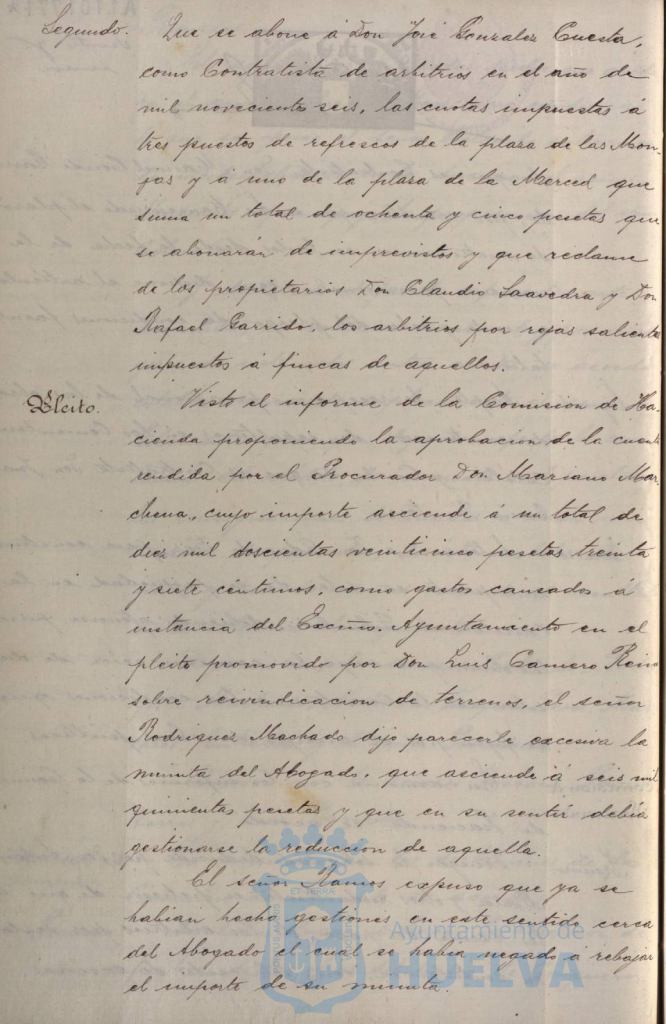 Segundo. Que se abone á Don José Gonzalez Cuesta,
como Contratista de arbitrios en el año de
mil novecientos seis, las cuotas impuestas á
tres puestos de refrescos de la plaza de las Mon-
jas y á uno de la plaza de la Merced que
suma un total de ochenta y cinco pesetas que
se abonarán de imprevistos y que reclame
de los propietarios Don Claudio Saavedra y Don
Rafael Garrido, los arbitrios por rejas salientes
impuestos á fincas de aquellos.
Pleito. Visto el informe de la Comision de Ha-
cienda proponiendo la aprobacion de la cuenta
rendida por el Procurador Don Mariano Mar-
chena, cuyo importe asciende á un total de
diez mil doscientas veinticinco pesetas treinta
y siete céntimos, como gastos causados á
instancia del Excmo. Ayuntamiento en el
pleito promovido por Don Luis Camero Reino
sobre reivindicacion de terrenos, el señor
Rodriguez Machado dijo parecerle excesiva la
minuta del Abogado, que asciende á seis mil
quinientas pesetas y que en su sentir debia
gestionarse la reduccion de aquella.
El señor Ramos expuso que ya se
habian hecho gestiones en este sentido cerca
del Abogado el cual se habia negado á rebajar
el importe de su minuta.
Ayuntamiento de
HUELVA